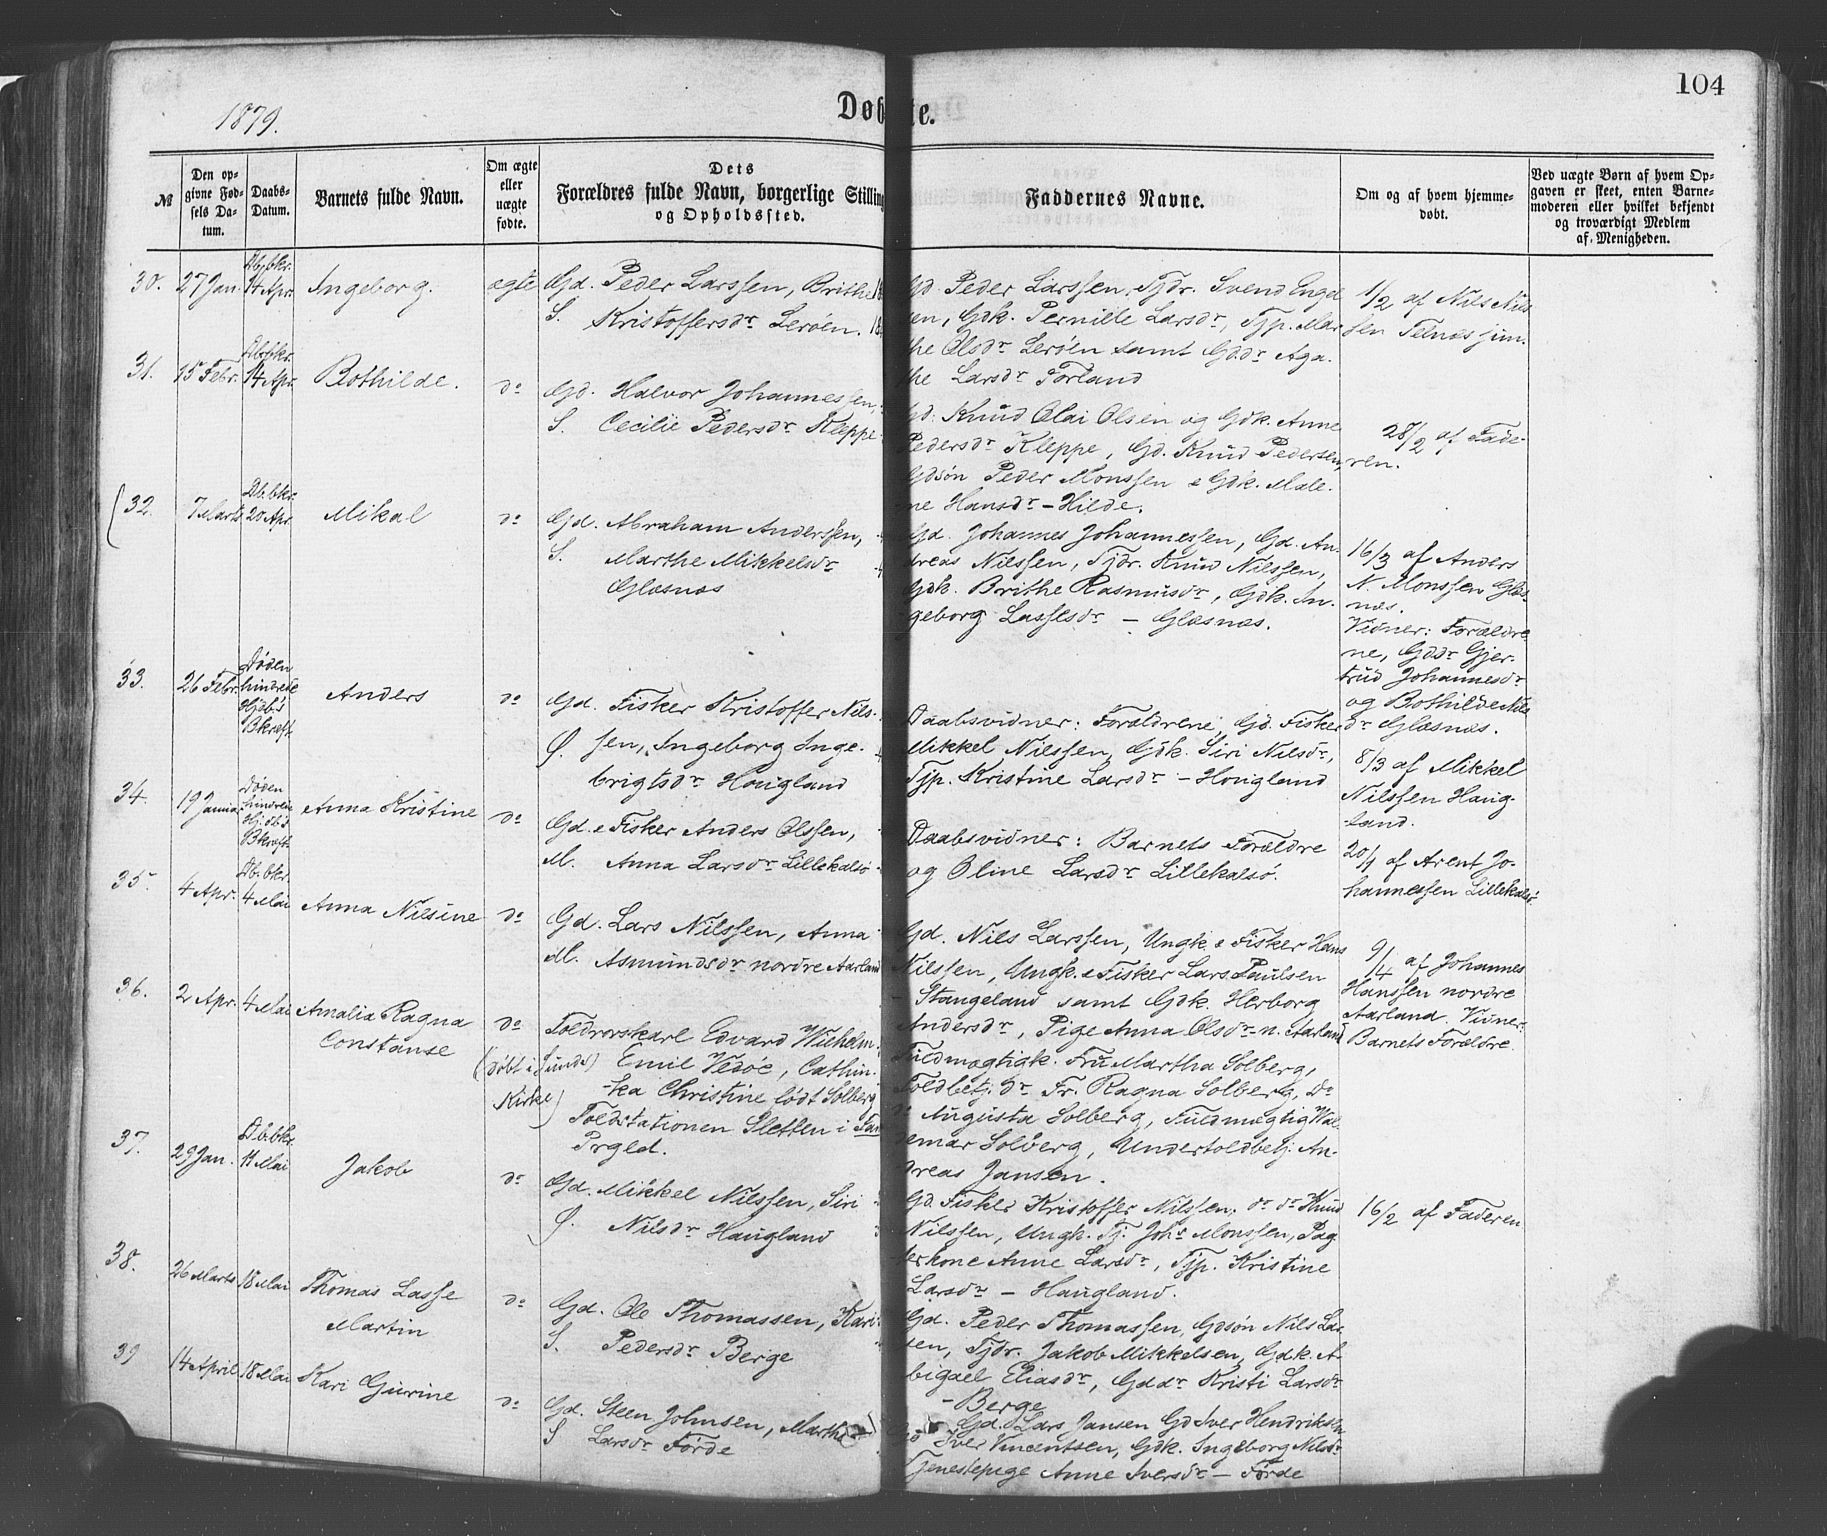 104
1879.
Døb te.
№
Den opgivne Fødsels Datum.
Daabs-Datum.
Barnets fulde Navn.
Om ægte eller uægte fødte.
Dets Forældres fulde Navn, borgerlige Stilling og Opholdssted.
Faddernes Navne.
Om og af hvem hjemmedøbt.
Ved uægte Børn af hvem Opgaven er skeet, enten Barnemoderen eller hvilket bekjendt og troværdigt Medlem af Menigheden.
30. 27 Jan. Db. bkr. 14 Apr. Ingeborg. ægte
Gd. Peder Larssen, Brithe
S. Kristoffersdr Lerøen.
Gd. Peder Larssen, Tjdr. Svend Engel
sen, Gdk. Pernille Larsdr, Tjp. Mar
the Olsdr Lerøen samt Gddr Aga
the Larsdr Forland
1/2 af Nils Nils
sen Telnæs jun.
31. 15 Febr. Db. bkr. 14 Apr. Bothilde. do
Gd. Halvor Johannessen,
S. Cecilie Pedersdr Kleppe
Gd. Knud Olai Olsen og Gdk. Anne
Pedersdr Kleppe, Gd. Knud Pedersen,
Gdsøn Peder Monssen & Gdk. Male-
ne Hansdr - Hilde.
28/2 af Fade-
ren.
32. 7 Marts Db. bkr. 20 Apr. Mikal do
Gd. Abraham Anderssen,
S. Marthe Mikkelsdr
Glæsnæs
Gd. Johannes Johannessen, Gd. An-
dreas Nilssen, Tjdr. Knud Nilssen,
Gdk. Brithe Rasmusdr, Gdk. In-
geborg Lassesdr - Glæsnæs.
16/3 af Anders
N. Monssen Glæs-
næs.
Vidner: Forældre
ne, Gddr Gjer-
trud Johannesdr
og Bothilde Nils
dr Glæsnæs.
33. 26 Febr. Døden hindrede Hjdb.s Bkræft. Anders do
Gd. Fisker Kristoffer Nils-
Ø. sen, Ingeborg Inge-
brigtsdr Hougland
Daabsvidner: Forældrene, Gd. Fisker
Mikkel Nilssen, Gdk. Siri Nilsdr,
Tjp. Kristine Larsdr - Hougland
8/3 af Mikkel
Nilssen Haug-
land.
34. 19 Januar Døden hindrede Hj.db.s Bkræft. Anna Kristine do
Gd. & Fisker Anders Olssen,
M. Anna Larsdr Lillekalsø
Daabsvidner: Barnets Forældre
og Oline Larsdr Lillekalsø.
20/1 af Arent Jo-
hannessen Lillekalsø
35. 4 Apr. Db. bkr. 4 Mai Anna Nilsine do
Gd. Lars Nilssen, Anna
M. Asmundsdr nordre Aarland
Gd. Nils Larssen, Ungk. & Fisker Hans
Nilssen, Ungk. & Fisker Lars Paulsen
- Stangeland samt Gdk. Herborg
Andersdr, Pige Anna Olsdr n. Aarland
9/4 af Johannes
Hanssen nordre
Aarland. Vidner:
Barnets Forældre
36. 2 Apr. 4 Mai Amalia Ragna
Constanse
do
(døbt i Sunds)
Kirke)
Toldroerskarl Edvard Wilhelm
Emil Vedøe, Cathin-
ka Christine født Solberg
Toldstationen Sletten i
Prgld.
Fuldmægtigk. Fru Martha Solberg,
Toldbetj. dr Fr. Ragna Solberg, Do
do Augusta Solberg, Fuldmægtig Wal
emar Solberg, Undertoldbetj. An-
dreas Jansen.
37. 29 Jan. Db. bkr. 11 Mai Jakob do
Gd. Mikkel Nilssen, Siri
Ø. Nilsdr Haugland
Gd. Fisker Kristoffer Nilssen, do do Knud
Nilssen, Ungk. Fj. Johs Monssen, Pag
terkone Anne Larsdr, Tjp. Kristine
Larsdr - Haugland.
16/2 af Faderen
38. 26 Marts 18 Mai Thomas Lasse
Martin
do
Gd. Ole Thomassen, Kari
S. Pedersdr Berge
Gd. Peder Thomassen, Gdsøn Nils Lar
sen, Tjdr. Jakob Mikkelsen, Gdk. A-
bigael Eliasdr, Gddr Kristi Larsdr
- Berge
39 14 April 18 Mai Kari Gurine do
Gd. Steen Johnsen, Marthe
S Larsdr Førde
Gd. Lars Jansen Gd Iver Hendriks
Iver Vincentsen, Gdk. Ingeborg Nilsdr
Tjenestepige Anne Iversdr - Førde